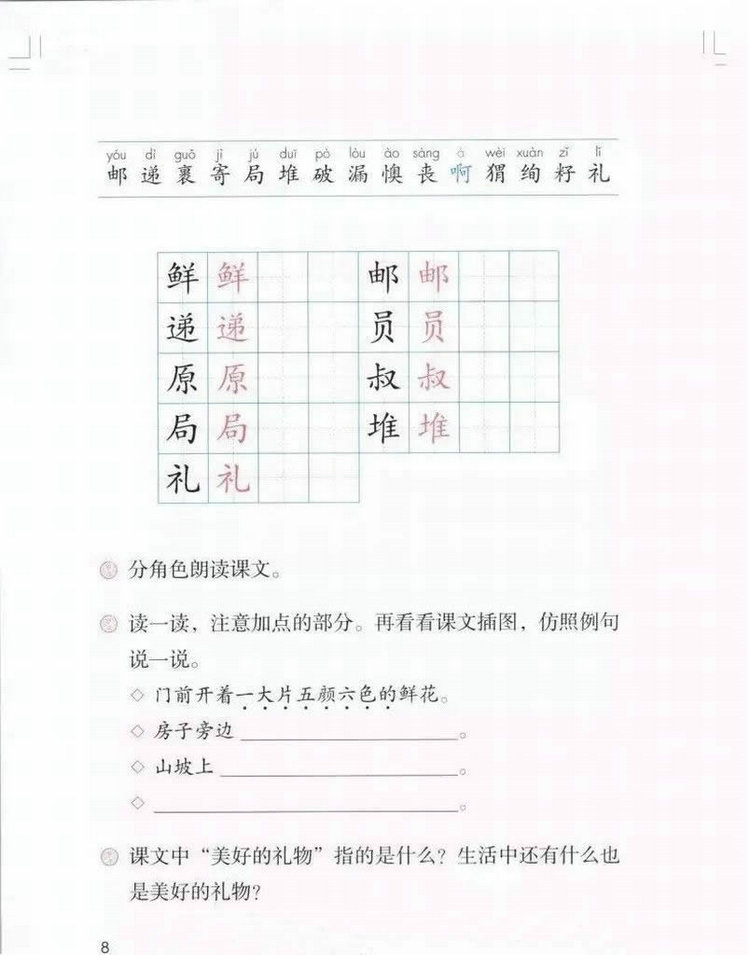 yóu dì guǒ jì jú duī pò lòu ào sàng a wèi xuàn zǐ lǐ
邮 递 裹 寄 局 堆 破 漏 懊 丧 啊 猬 绚 籽 礼
鲜 鲜 邮 邮
递 递 员 员
原 原 叔 叔
局 局 堆 堆
礼 礼
分角色朗读课文。
读一读，注意加点的部分。再看看课文插图，仿照例句
说一说。
◇ 门前开着一大片五颜六色的鲜花。
◇ 房子旁边____________________。
◇ 山坡上____________________。
◇ ____________________。
课文中“美好的礼物”指的是什么？生活中还有什么也
是美好的礼物？
8